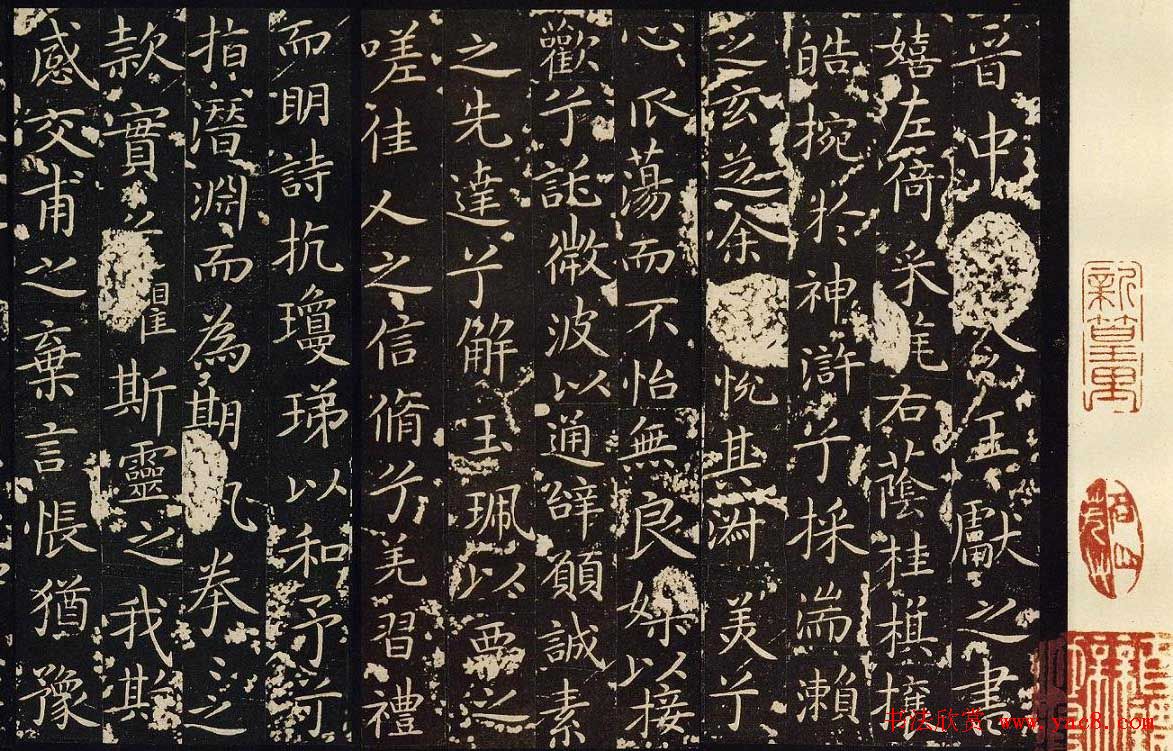 晋中令王獻之書
嬉左倚采旄右蔭桂旗攘
皓捥於神滸兮採湍瀨
之玄芝余悅其淑美兮
心蕩而不怡無良媒以接
歡兮託微波以通辭願誠素
之先達兮解玉珮以要之
嗟佳人之信脩兮羌習禮
而明詩抗瓊珶以和予兮
指潛淵而為期執拳之
款實兮懼斯靈之我欺
感交甫之棄言悵猶豫
书法欣赏 www.yac8.com